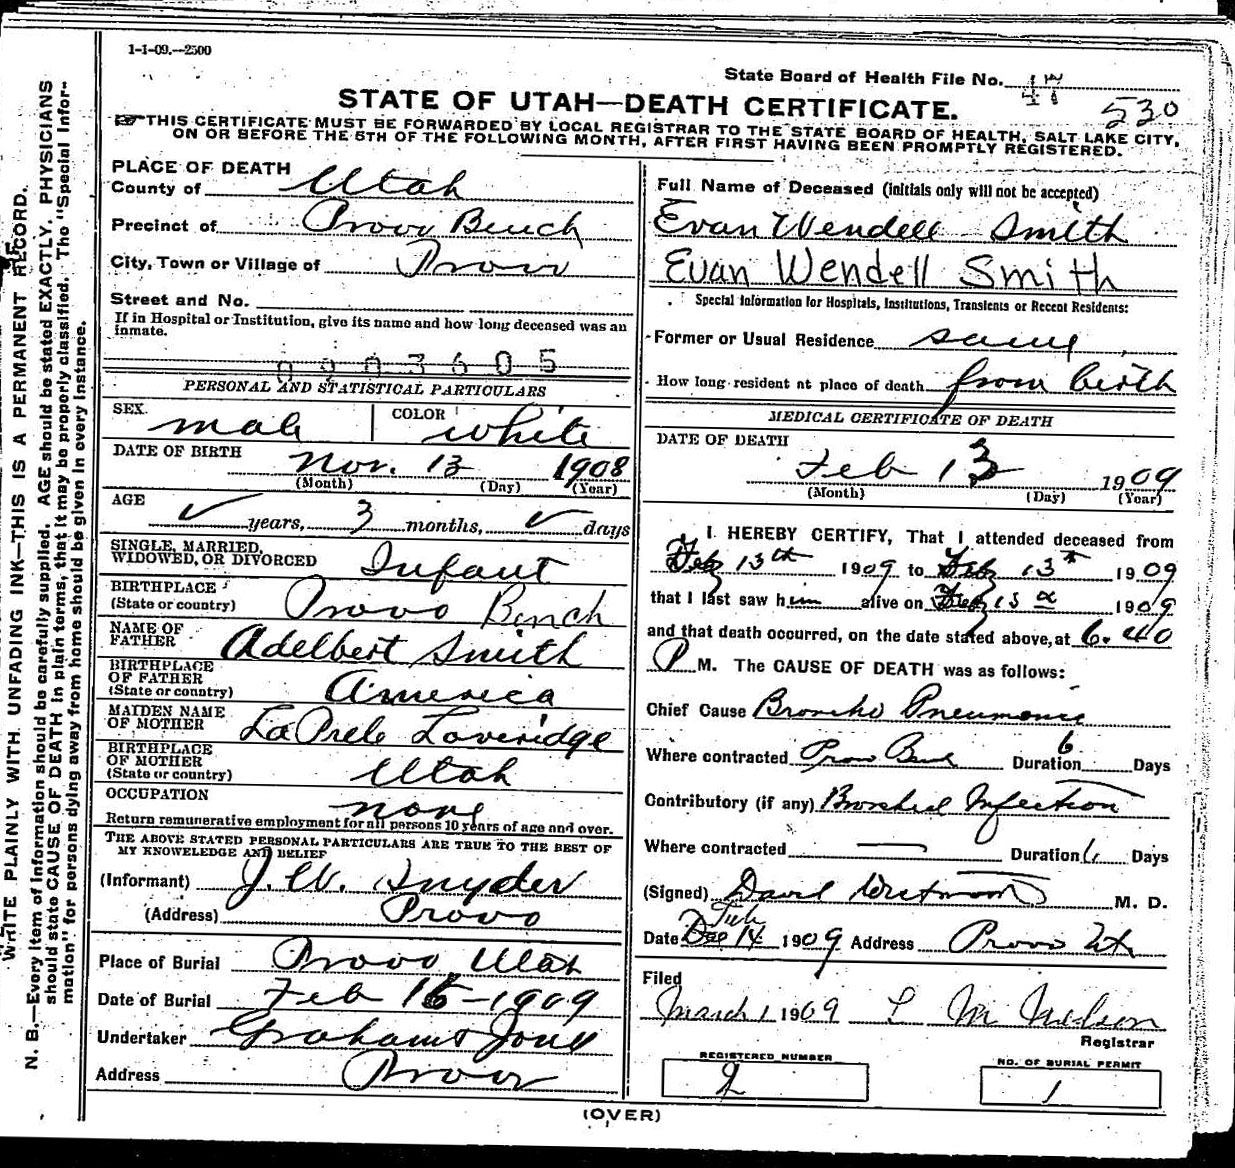 1-1-09.—2500
State Board of Health File No. 47
530
STATE OF UTAH—DEATH CERTIFICATE.
THIS CERTIFICATE MUST BE FORWARDED BY LOCAL REGISTRAR TO THE STATE BOARD OF HEALTH, SALT LAKE CITY,
ON OR BEFORE THE 5TH OF THE FOLLOWING MONTH, AFTER FIRST HAVING BEEN PROMPTLY REGISTERED.
WRITE PLAINLY WITH UNFADING INK—THIS IS A PERMANENT RECORD.
N. B.—Every item of information should be carefully supplied. AGE should be stated EXACTLY. PHYSICIANS
should state CAUSE OF DEATH in plain terms, that it may be properly classified. The "Special Infor-
mation" for persons dying away from home should be given in every instance.
PLACE OF DEATH
County of Utah
Precinct of Provo Bench
City, Town or Village of Provo
Street and No.
If in Hospital or Institution, give its name and how long deceased was an
inmate.
0003605
PERSONAL AND STATISTICAL PARTICULARS
SEX male COLOR white
DATE OF BIRTH Nov. 13 1908
(Month) (Day) (Year)
AGE
✓ years, 3 months, ✓ days
SINGLE, MARRIED,
WIDOWED, OR DIVORCED Infant
BIRTHPLACE
(State or country) Provo Bench
NAME OF
FATHER Adelbert Smith
BIRTHPLACE
OF FATHER
(State or country) America
MAIDEN NAME
OF MOTHER LaPrele Loveridge
BIRTHPLACE
OF MOTHER
(State or country) Utah
OCCUPATION none
Return remunerative employment for all persons 10 years of age and over.
THE ABOVE STATED PERSONAL PARTICULARS ARE TRUE TO THE BEST OF
MY KNOWLEDGE AND BELIEF
(Informant) J. W. Snyder
(Address) Provo
Place of Burial Provo Utah
Date of Burial Feb 16-1909
Undertaker Graham & Jones
Address Provo
Full Name of Deceased (initials only will not be accepted)
Evan Wendell Smith
Evan Wendell Smith
Special Information for Hospitals, Institutions, Transients or Recent Residents:
Former or Usual Residence same
How long resident at place of death from birth
MEDICAL CERTIFICATE OF DEATH
DATE OF DEATH
Feb 13 1909
(Month) (Day) (Year)
I HEREBY CERTIFY, That I attended deceased from
Feb 13th 1909 to Feb 13th 1909
that I last saw him alive on Feb 13th 1909
and that death occurred, on the date stated above, at 6.40
P M. The CAUSE OF DEATH was as follows:
Chief Cause Broncho Pneumonia
Where contracted Provo Bench Duration 6 Days
Contributory (if any) Bronchial Infection
Where contracted — Duration 6 Days
(Signed) David Westwood M. D.
Date Feb 14 1909 Address Provo Ut
Filed
March 1 1909 L M Nelson
Registrar
REGISTERED NUMBER
2
NO. OF BURIAL PERMIT
1
(OVER)